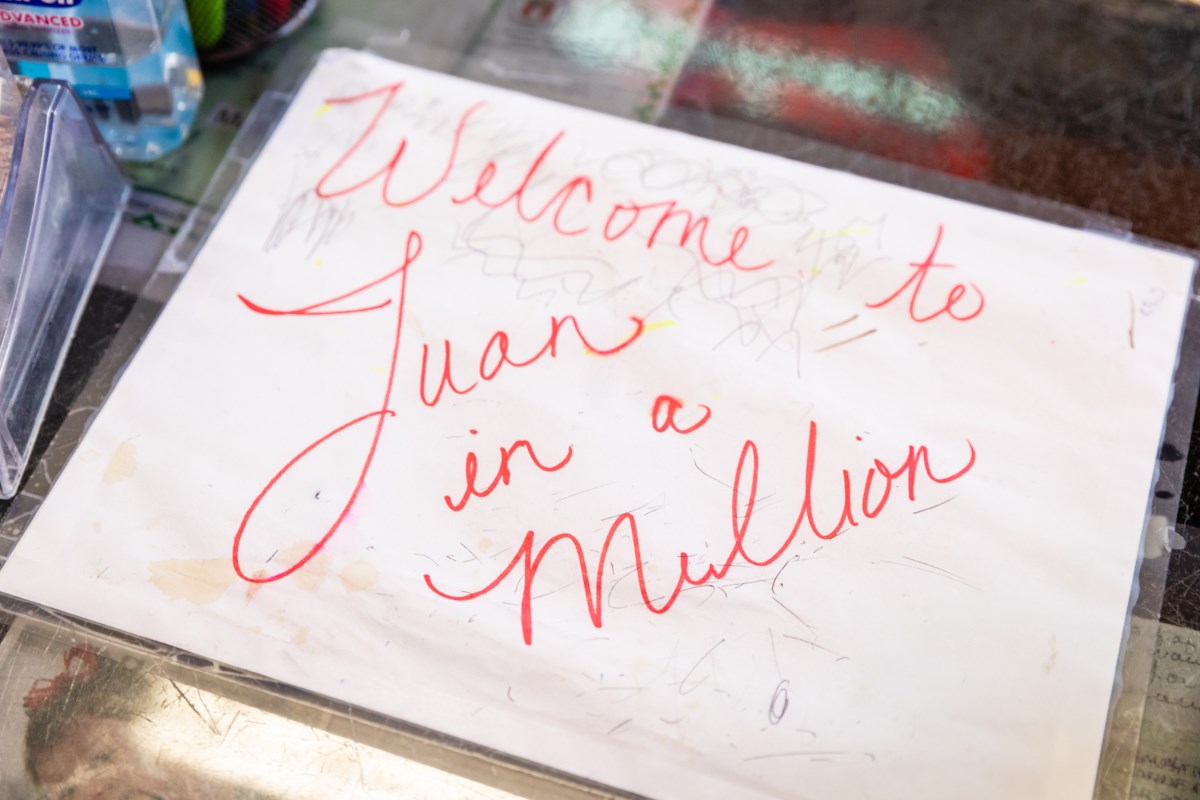 ADVANCED
Welcome to
Juan
in a
Million